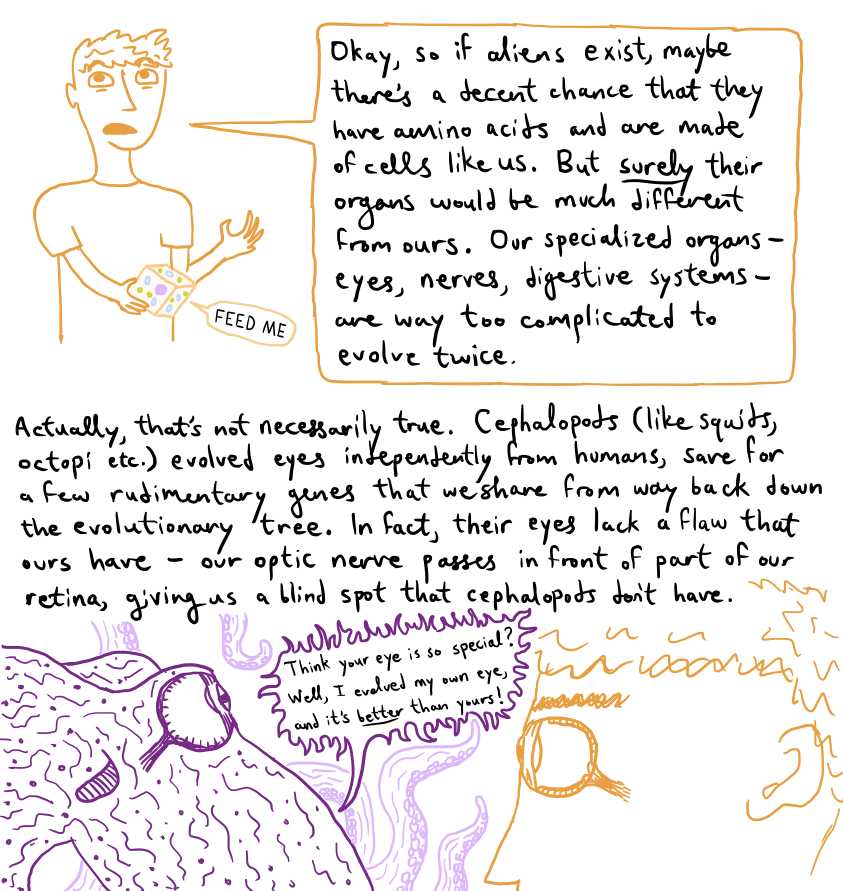 Okay, so if aliens exist, maybe
there's a decent chance that they
have amino acids and are made
of cells like us. But surely their
organs would be much different
from ours. Our specialized organs –
eyes, nerves, digestive systems –
are way too complicated to
evolve twice.
FEED ME
Actually, that's not necessarily true. Cephalopods (like squids,
octopi etc.) evolved eyes independently from humans, save for
a few rudimentary genes that we share from way back down
the evolutionary tree. In fact, their eyes lack a flaw that
ours have – our optic nerve passes in front of part of our
retina, giving us a blind spot that cephalopods don't have.
Think your eye is so special?
Well, I evolved my own eye,
and it's better than yours!